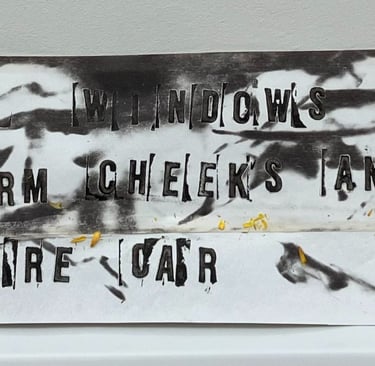 WINDOWS
RM CHEEKS AN
RE CAR